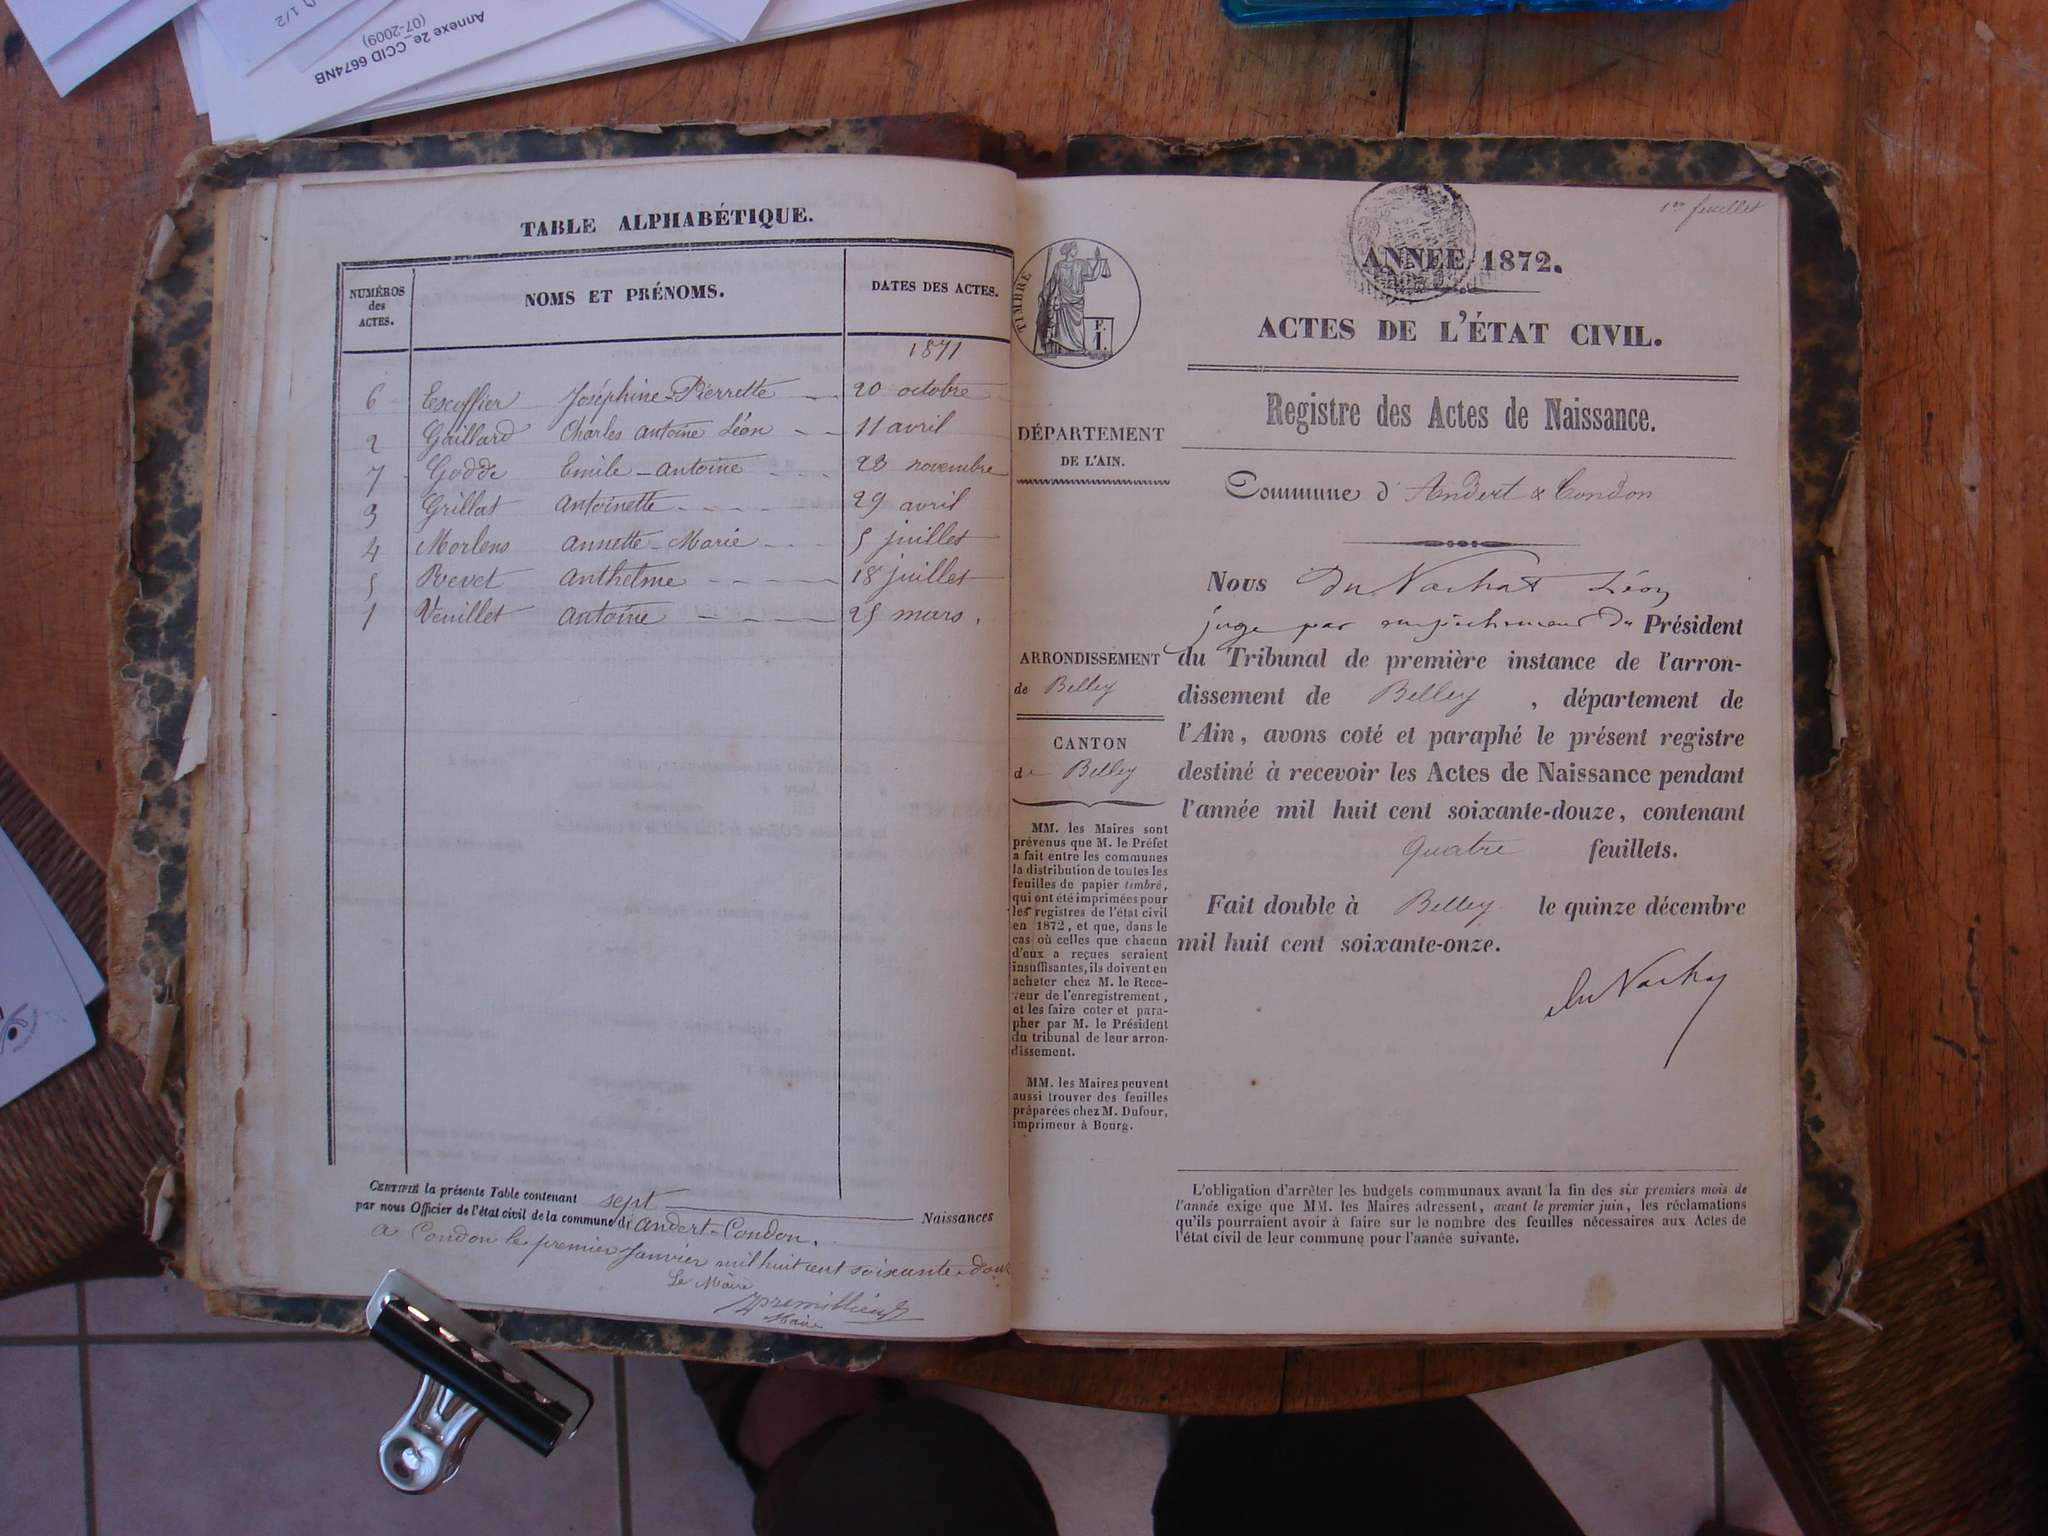 1/2
Annexe 2e_CCID 6674NB
(07-2009)
TABLE ALPHABÉTIQUE.
NUMÉROS
des
ACTES.
NOMS ET PRÉNOMS.
DATES DES ACTES.
1871
6 Escoffier Joséphine-Pierrette 20 octobre
2 Gaillard Charles Antoine Léon 11 avril
7 Godde Emile-Antoine 28 novembre
3 Grillat Antoinette 29 avril
4 Morlens Annette-Marie 5 juillet
5 Revet Anthelme 18 juillet
1 Veuillet Antoine 25 mars.
CERTIFIÉ la présente Table contenant sept Naissances
par nous Officier de l'état civil de la commune d'Andert-Condon.
A Condon le premier Janvier mil huit cent soixante-douze
Le Maire
Premillieux
Maire
1er feuillet
TIMBRE
F.
1.
ANNÉE 1872.
ACTES DE L'ÉTAT CIVIL.
Registre des Actes de Naissance.
Commune d'Andert & Condon
DÉPARTEMENT
DE L'AIN.
ARRONDISSEMENT
de Belley
CANTON
de Belley
MM. les Maires sont
prévenus que M. le Préfet
a fait entre les communes
la distribution de toutes les
feuilles de papier timbré,
qui ont été imprimées pour
les registres de l'état civil
en 1872, et que, dans le
cas où celles que chacun
d'eux a reçues seraient
insuffisantes, ils doivent en
acheter chez M. le Rece-
veur de l'enregistrement,
et les faire coter et para-
pher par M. le Président
du tribunal de leur arron-
dissement.
MM. les Maires peuvent
aussi trouver des feuilles
préparées chez M. Dufour,
imprimeur à Bourg.
Nous Du Vachat Léon
juge par empêchement du Président
du Tribunal de première instance de l'arron-
dissement de Belley, département de
l'Ain, avons coté et paraphé le présent registre
destiné à recevoir les Actes de Naissance pendant
l'année mil huit cent soixante-douze, contenant
quatre feuillets.
Fait double à Belley le quinze décembre
mil huit cent soixante-onze.
du Vachat
L'obligation d'arrêter les budgets communaux avant la fin des six premiers mois de
l'année exige que MM. les Maires adressent, avant le premier juin, les réclamations
qu'ils pourraient avoir à faire sur le nombre des feuilles nécessaires aux Actes de
l'état civil de leur commune pour l'année suivante.